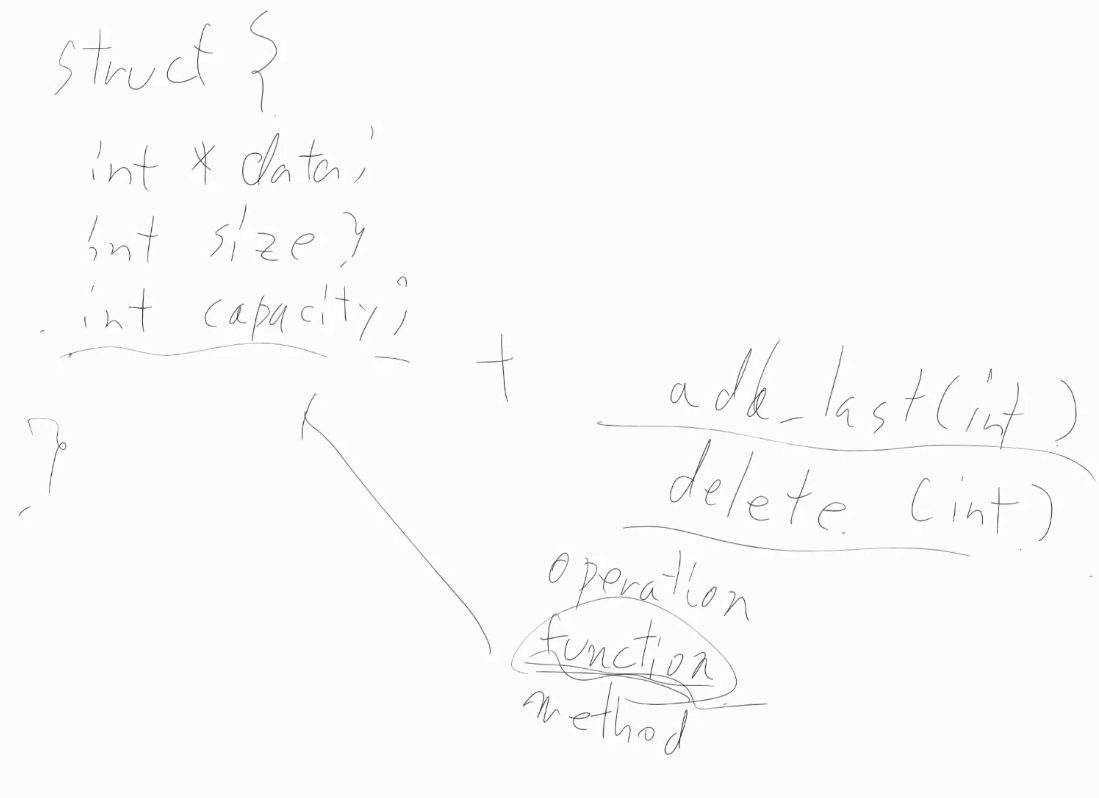 struct {
int * data;
int size;
int capacity;
+
add_last(int)
delete (int)
}
operation
function
method